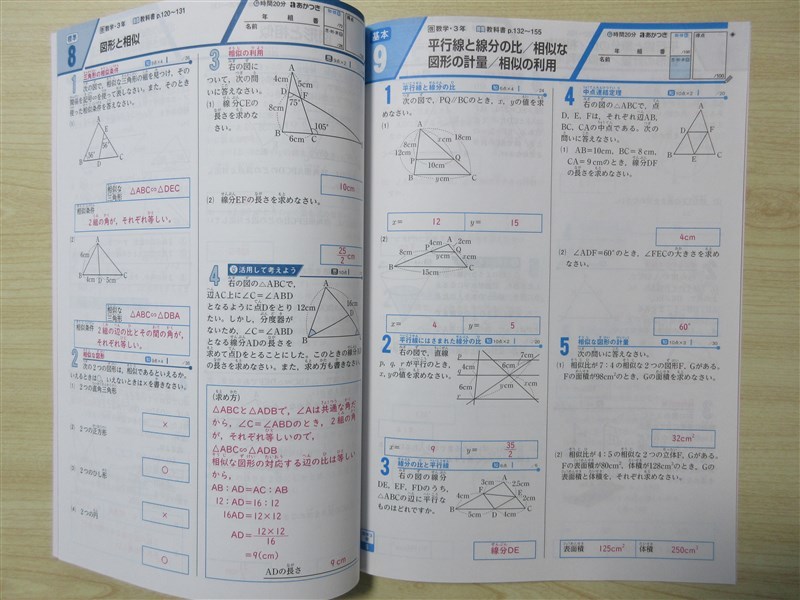 基本
8
数学・3年
教科書 p.120~131
図形と相似
時間20分
あかつき
年 組 番
名前
1
相似な図形の相似条件
次の図で，相似な三角形の組を見つけ，その
関係を記号∽を使って表しなさい。また，そのとき
使った相似条件を答えなさい。
(1)
A
D
56°
56°
B
E
C
相似な三角形
△ABC∽△DEC
相似条件
2組の角が，それぞれ等しい。
(2)
A
4cm
B
4cm
D
5cm
C
相似な三角形
△ABC∽△DBA
相似条件
2組の辺の比とその間の角が，
それぞれ等しい。
2
相似な図形
次の2つの図形は，相似であるといえるか。
いえるときは○，いえないときは×を書きなさい。
(1) 2つの直角三角形
×
(2) 2つの正方形
○
(3) 2つのひし形
×
(4) 2つの円
○
3
相似の利用
右の図に
ついて，次の問
いに答えなさい。
(1) 線分CEの
長さを求めな
さい。
A
4cm
5cm
D
F
75°
8cm
105°
B
6cm
C
10cm
(2) 線分EFの長さを求めなさい。
25/2 cm
4
活用して考えよう
右の図の△ABCで，
辺AC上に∠C＝∠ABD
となるように点Dをとり
たい。しかし，分度器が
ないため，∠C＝∠ABD
となる線分ADの長さを
求めて点Dをとることにした。このときの線分AD
の長さを求めなさい。また，求め方も書きなさい。
A
12cm
16cm
B
C
(求め方)
△ABCと△ADBで，∠Aは共通な角だ
から，∠C＝∠ABDのとき，2組の角
が，それぞれ等しいので，
△ABC∽△ADB
相似な図形の対応する辺の比は等しい
から，
AB：AD＝AC：AB
12：AD＝16：12
16AD＝12×12
AD＝12×12/16
＝9(cm)
ADの長さ 9cm
基本
9
数学・3年
教科書 p.132~155
平行線と線分の比／相似な
図形の計量／相似の利用
時間20分
あかつき
年 組 番
名前
/100
1
平行線と線分の比
次の図で，PQ∥BCのとき，x，yの値を求
めなさい。
(1)
A
8cm
xcm
18cm
12cm
P
Q
10cm
B
ycm
C
x＝ 12 y＝ 15
(2)
P
4cm
A
2cm
Q
8cm
B
15cm
C
x＝ 4 y＝ 5
2
平行線にはさまれた線分の比
右の図で，直線
p，q，rが平行のとき，
x，yの値を求めなさい。
7cm
6cm
x＝ 9 y＝ 35/2
3
線分の比と平行線
右の図の線分
DE，EF，FDのうち，
△ABCの辺に平行な
ものはどれですか。
A
3cm
2.5cm
F
E
4cm
3cm
B
5cm
D
4cm
C
線分DE
4
中点連結定理
右の図の△ABCで，点
D，E，Fは，それぞれ辺AB，
BC，CAの中点である。次の
問いに答えなさい。
A
D
F
B
E
C
(1) AB＝10cm，BC＝8cm，
CA＝9cmのとき，線分DF
の長さを求めなさい。
4cm
(2) ∠ADF＝60°のとき，∠FECの大きさを求め
なさい。
60°
5
相似な図形の計量
次の問いに答えなさい。
(1) 相似比が7：4の相似な2つの図形F，Gがある。
Fの面積が98cm²のとき，Gの面積を求めなさい。
32cm²
(2) 相似比が4：5の相似な2つの立体F，Gがある。
Fの表面積が80cm²，体積が128cm³のとき，Gの
表面積と体積を，それぞれ求めなさい。
表面積 125cm² 体積 250cm³